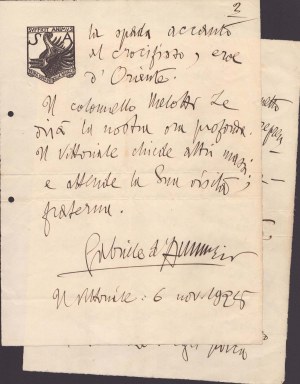 2
la spada accanto
al crocifisso, eroe
d'Oriente.
Il colonnello Melotti Le
dirà la nostra ora profonda.
Il Vittoriale chiede altri
e attende la Sua visita
fraterna.
Gabriele d'Annunzio
Il Vittoriale : 6 nov. 1925